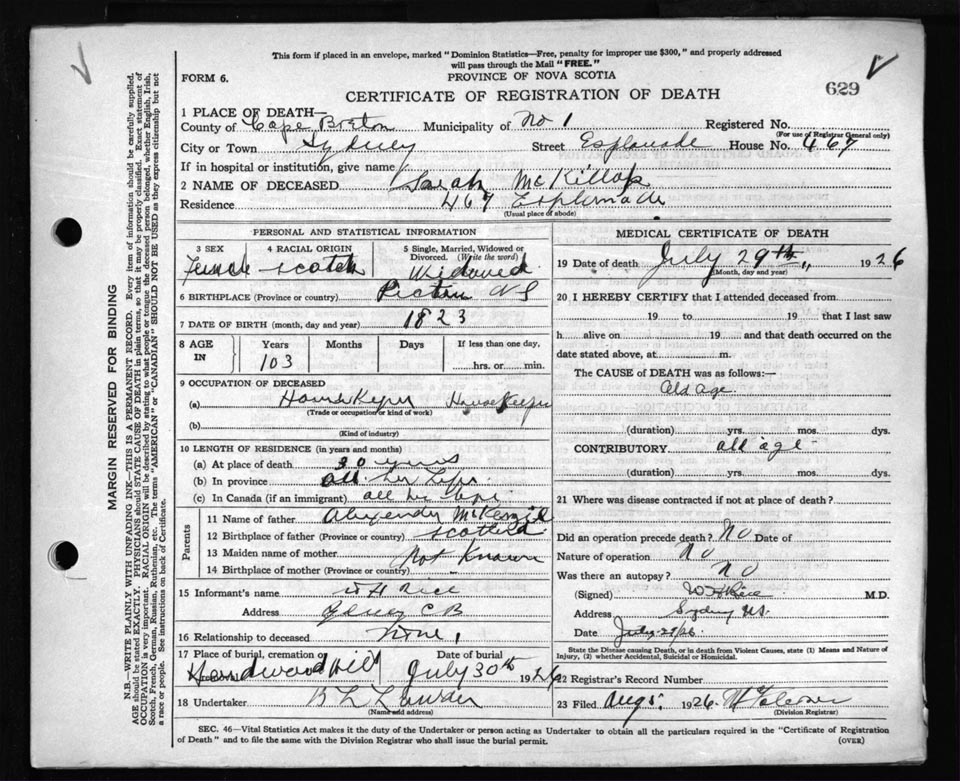 This form if placed in an envelope, marked "Dominion Statistics—Free, penalty for improper use $300," and properly addressed
will pass through the Mail "FREE."
FORM 6.
PROVINCE OF NOVA SCOTIA
629
CERTIFICATE OF REGISTRATION OF DEATH
1 PLACE OF DEATH—
County of Cape Breton Municipality of No 1 Registered No.
(For use of Registrar General only)
City or Town Sydney Street Esplanade House No. 467
If in hospital or institution, give name
2 NAME OF DECEASED Sarah McKillop
Residence 467 Esplanade
(Usual place of abode)
PERSONAL AND STATISTICAL INFORMATION
3 SEX 4 RACIAL ORIGIN 5 Single, Married, Widowed or
Divorced. (Write the word)
Female Scotch Widowed
6 BIRTHPLACE (Province or country) Pictou NS
7 DATE OF BIRTH (month, day and year) 1823
8 AGE IN Years Months Days If less than one day,
103 hrs. or min.
9 OCCUPATION OF DECEASED
(a) House Keeper House Keeper
(Trade or occupation or kind of work)
(b)
(Kind of industry)
10 LENGTH OF RESIDENCE (in years and months)
(a) At place of death 30 years
(b) In province all her life
(c) In Canada (if an immigrant) all her life
Parents
11 Name of father Alexender McKenzie
12 Birthplace of father (Province or country) Scotland
13 Maiden name of mother Not Known
14 Birthplace of mother (Province or country)
15 Informant's name W H Rice
Address Sydney C B
16 Relationship to deceased none
17 Place of burial, cremation or Date of burial
Hardwood Hill July 30th 1926
18 Undertaker
(Name and address)
MEDICAL CERTIFICATE OF DEATH
19 Date of death July 29th 1926
(Month, day and year)
20 I HEREBY CERTIFY that I attended deceased from
19 to 19 that I last saw
h alive on 19 and that death occurred on the
date stated above, at m.
The CAUSE of DEATH was as follows:—
Old Age
(duration) yrs. mos. dys.
CONTRIBUTORY old age
(duration) yrs. mos. dys.
21 Where was disease contracted if not at place of death?
Did an operation precede death? No Date of
Nature of operation No
Was there an autopsy? No
(Signed) W H Rice M.D.
Address Sydney NS.
Date July 29/26.
State the Disease causing Death, or in Death from Violent Causes, state (1) Means and Nature of
Injury, (2) whether Accidental, Suicidal or Homicidal.
22 Registrar's Record Number
23 Filed Aug 1926
(Division Registrar)
SEC. 46—Vital Statistics Act makes it the duty of the Undertaker or person acting as Undertaker to obtain all the particulars required in the "Certificate of Registration
of Death" and to file the same with the Division Registrar who shall issue the burial permit.
(OVER)
MARGIN RESERVED FOR BINDING
N.B.—WRITE PLAINLY WITH UNFADING INK—THIS IS A PERMANENT RECORD. Every item of information should be carefully supplied.
AGE should be stated EXACTLY. PHYSICIANS should STATE CAUSE OF DEATH in plain terms, so that it may be properly classified. Exact statement of
OCCUPATION is very important. RACIAL ORIGIN will be described by stating to what people or tongue the deceased person belonged, whether English, Irish,
Scotch, French, German, Russian, Ruthenian, etc. The terms "AMERICAN" or "CANADIAN" SHOULD NOT BE USED as they express citizenship but not
a race or people. See instructions on back of Certificate.